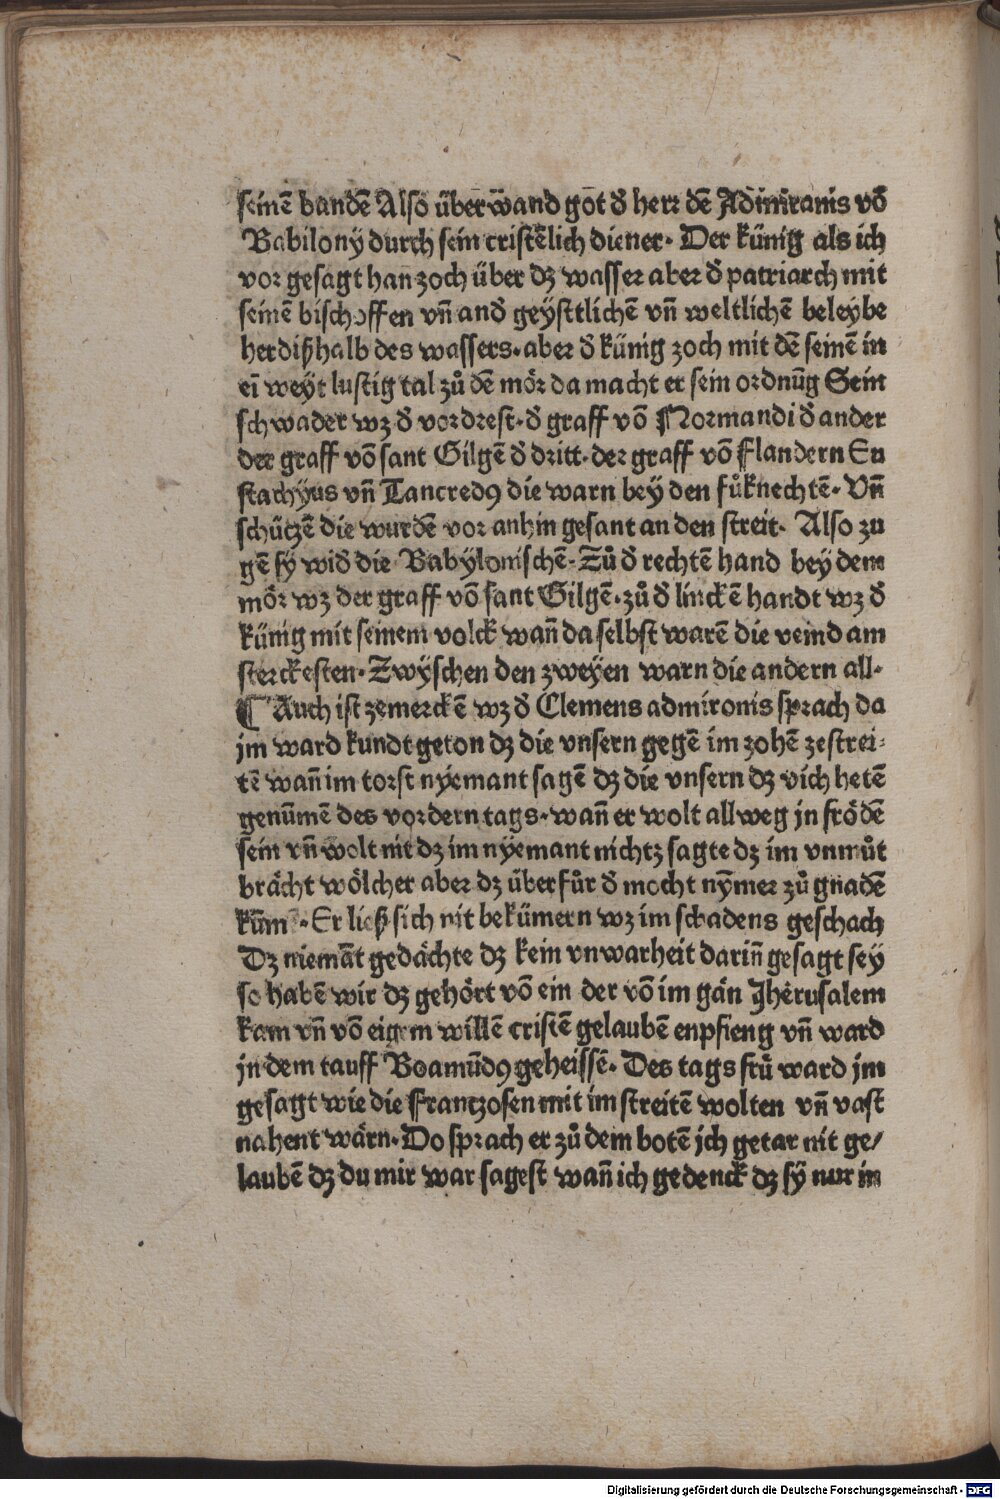 seinē bandē Also überwand got d̄ herr dē Admiranis vō
Babilonÿ durch sein cristēlich diener. Der künig als ich
vor gesagt han zoch über dz wasser aber d̄ patriarch mit
seinē bischoffen vn̄ and̄ geÿsttlichē vn̄ weltlichē beleybe
herdißhalb des wassers. aber d̄ künig zoch mit dē seinē in
ein̄ weÿt lustig tal zů dē mör da macht er sein ordnūg Sein
schwader wz d̄ vordrest. d̄ graff vō Normandi d̄ ander
der graff vō sant Gilgē d̄ dritt. der graff vō Flandern Eu
stachÿus vn̄ Tancredꝯ die warn beÿ den fůknechtē. Vn̄
schützē die wurdē vor anhin gesant an den streit. Also zu
gē sÿ wid̄ die Babÿlonischē. Zů d̄ rechtē hand bey dem
mör wz der graff vō sant Gilgē. zů d̄ linckē handt wz d̄
künig mit seinem volck wan̄ da selbst warē die veind am
sterckesten. Zwÿschen den zweÿen warn die andern all.
¶ Auch ist zemerckē wz d̄ Clemens admironis sprach da
jm ward kundt geton dz die vnsern gegē im zohē zestrei⸗
tē wan̄ im torst nÿemant sagē dz die vnsern dz vich hetē
genūmē des vordern tags. wan̄ er wolt allweg jn frödē
sein vn̄ wolt nit dz im nÿemant nichtz sagte dz im vnmůt
brächt wölcher aber dz überfůr d̄ mocht nÿmer zů gnadē
küm̄. Er ließ sich nit bekümern wz im schadens geschach
Dz niemāt gedächte dz kein vnwarheit darin̄ gesagt sey
so habē wir dz gehört vō ein der vō im gän Jherusalem
kam vn̄ vō eigem willē cristē gelaubē enpfieng vn̄ ward
jn dem tauff Boamūdꝯ geheissē. Des tags frü ward jm
gesagt wie die Frantzosen mit im streitē wolten vn̄ vast
nahent wärn. Do sprach er zů dem botē jch getar nit ge/
laubē dz du mir war sagest wan̄ ich gedenck dz sÿ nur in
Digitalisierung gefördert durch die Deutsche Forschungsgemeinschaft - DFG